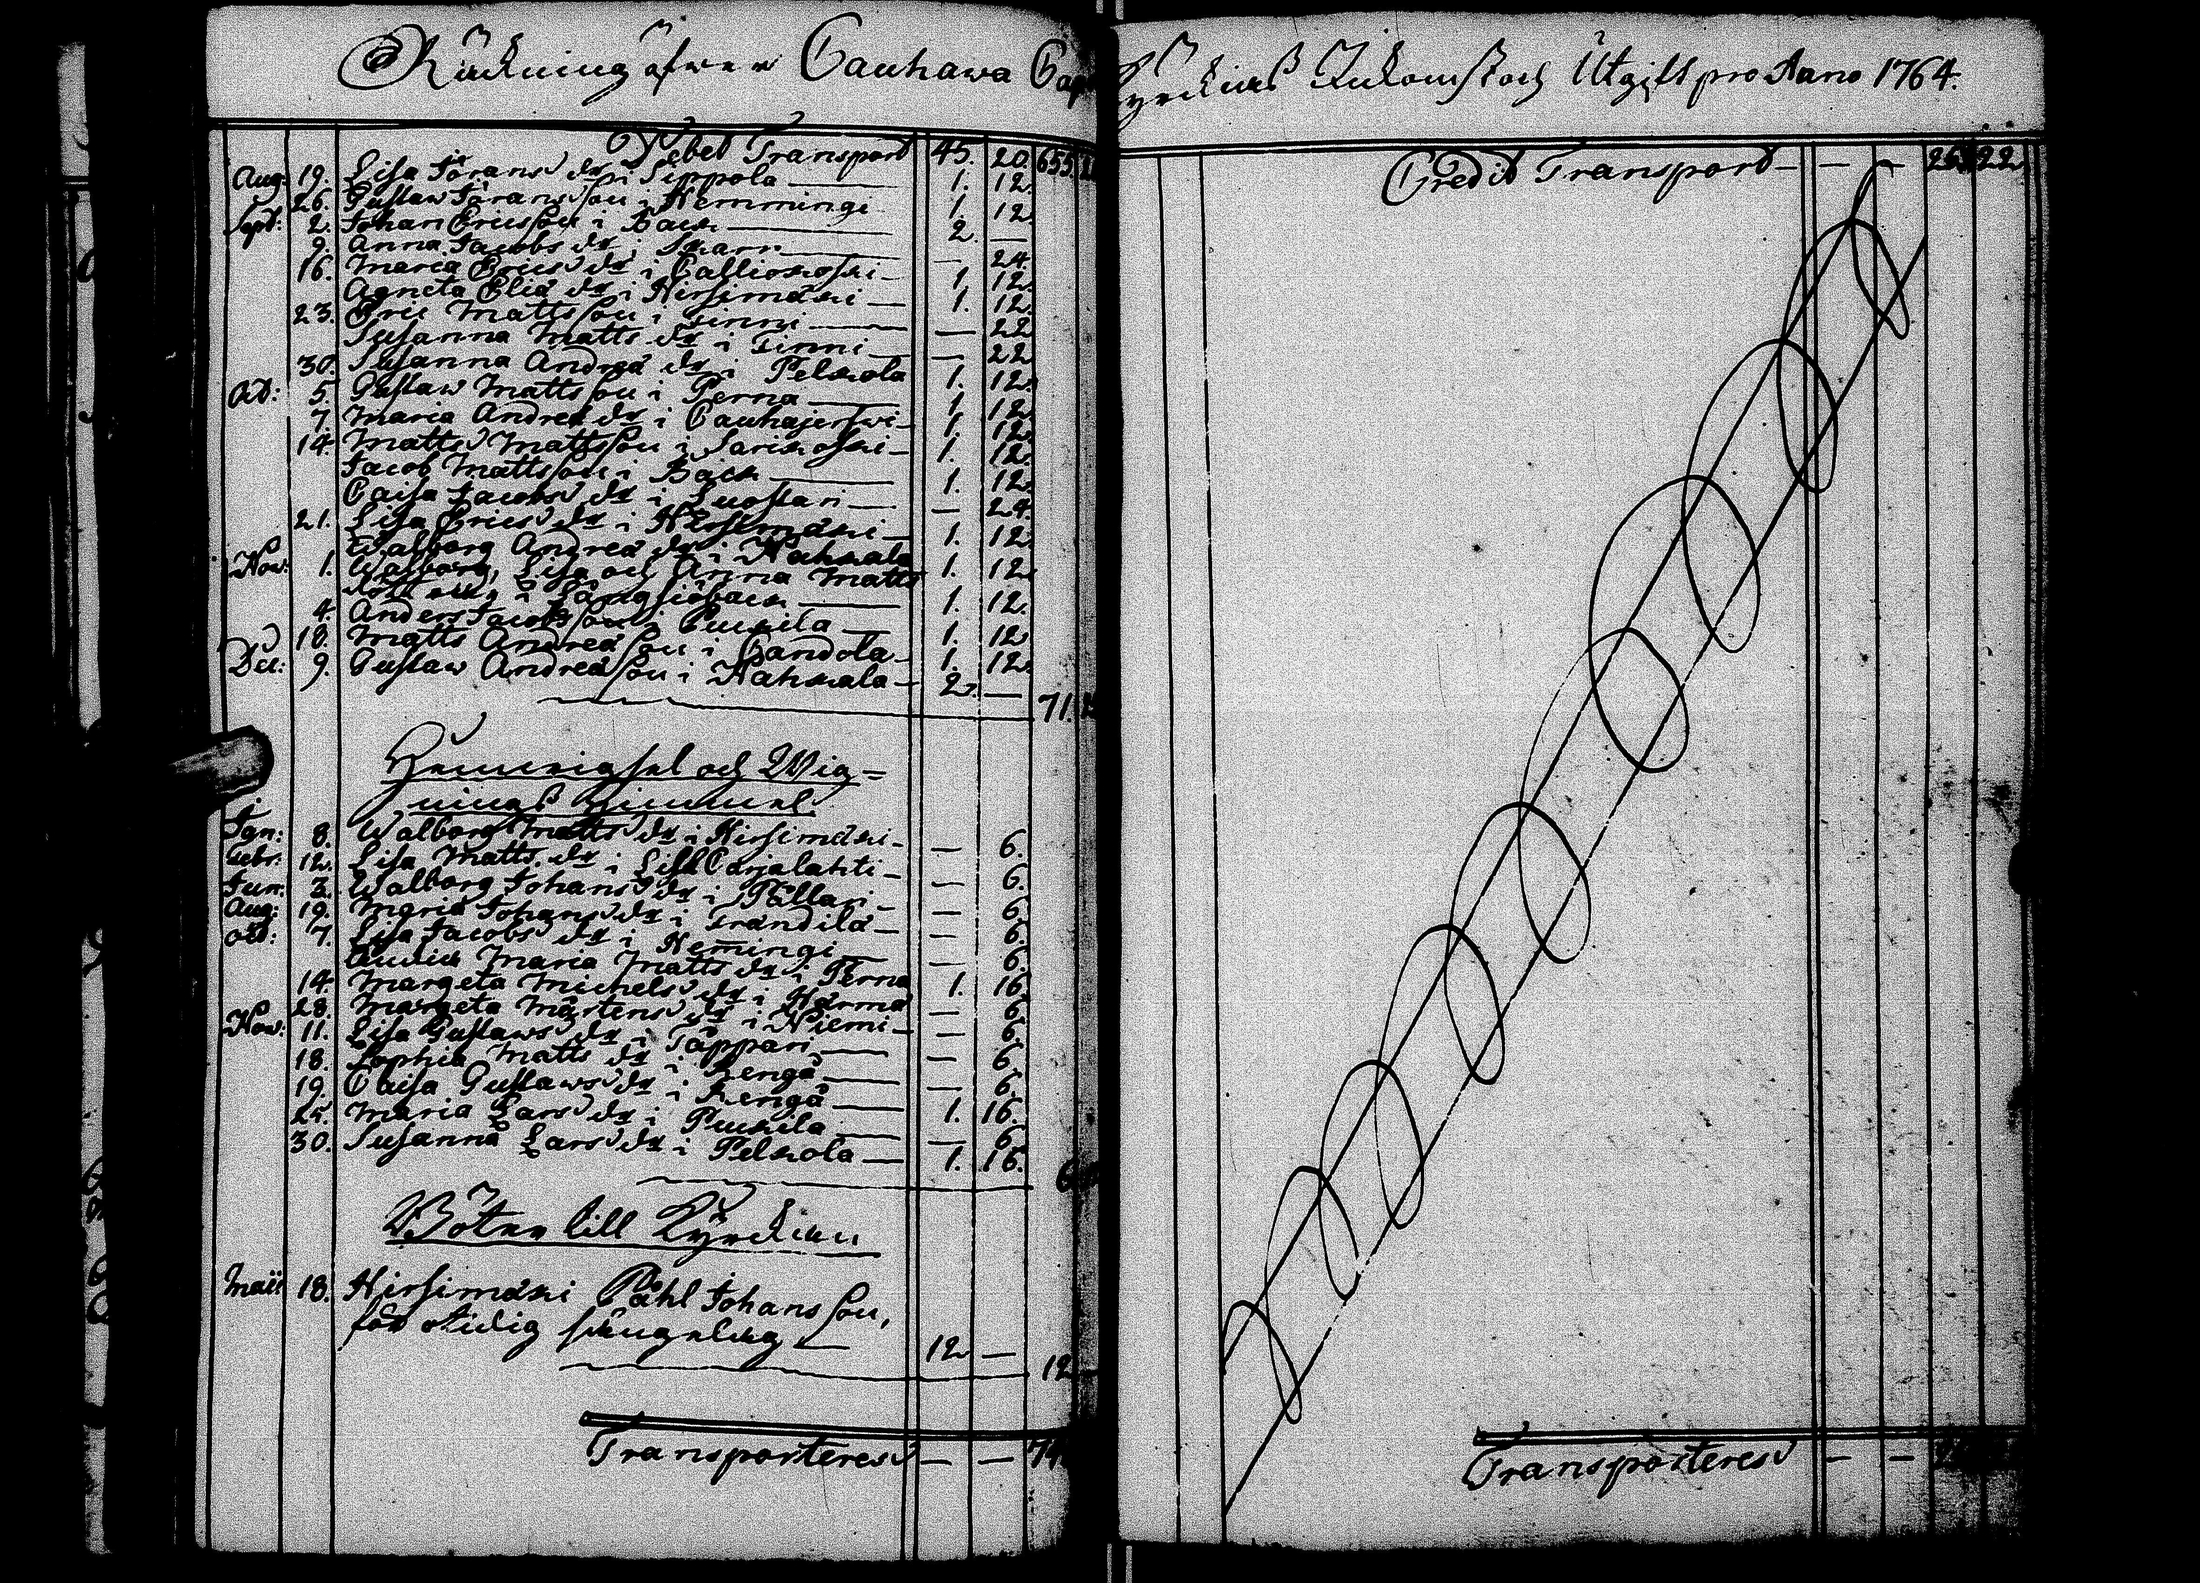 Räckning öfwer Cauhawa Cap
Kyrckias Inkomst och Utgift pro Anno 1764.
Debet Transport 45. 20. 655.
Aug: 19. Lisa Jörans dr i Seppola — 1. 12.
26. Gustaw Jörans Son i Hemmingi 1. 12.
Sept: 2. Johan Ericsson i Back — 2. —
9. Anna Jacobs dr i Skarn — — 24.
16. Maria Erics dr i Calliokoski — 1. 12.
Agneta Eliæ dr i Hirsimäki — 1. 12.
23. Eric Mattsson i Finni — — 22.
Susanna Matts dr i Finni — — 22.
30. Susanna Andreæ dr i Pelkola 1. 12.
Oct: 5. Gustaw Mattsson i Perna — 1. 12.
7. Maria Andreæ dr i Cauhajerfwi — 1. 12.
14. Matts Mattsson i Sarikoski — 1. 12.
Jacob Mattsson i Back — 1. 12.
Caisa Jacobs dr i Luostari — — 24.
21. Lisa Erics dr i Hirsimäki — 1. 12.
Walborg Andreæ dr i Kahkala 1. 12.
Now: 1. Walborg, Lisa och Anna Matts
döttrar i Långsiöback — 1. 12.
4. Anders Jacobsson i Puckila — 1. 12.
18. Matts Andreæ Son i Candola — 1. 12.
Dec: 9. Gustaw Andreæ Son i Kahkala — 2. —
71.
Hemmigsel och Wig=
nings Himmel
Jan: 8. Walborg Matts dr i Hirsimäki — — 6.
Febr: 12. Lisa Matts dr i Lill Carjalahti — — 6.
Jun: 3. Walborg Johans dr i Pellari — — 6.
Aug: 19. Maria Johans dr i Trandila — — 6.
Oct: 7. Lisa Jacobs dr i Hemingi — — 6.
Anna Maria Matts dr i Perna 1. 16.
14. Margeta Michels dr i Härmä — 6.
28. Margeta Mårtens dr i Niemi — — 6.
Now: 11. Lisa Gustaws dr i Pappari — — 6.
18. Sophia Matts dr i Rengå — — 6.
19. Caisa Gustaws dr i Rengå — 1. 16.
25. Maria Lars dr i Puckila — — 6.
30. Susanna Lars dr i Pelkola — 1. 16.
Böter till Kyrckian
Maii 18. Hirsimäki Påhl Johans Son,
för otidig sängelag — 12. —
12 —
Transporteres — — 74
Credit Transport — — — 22.
Transporteres — —